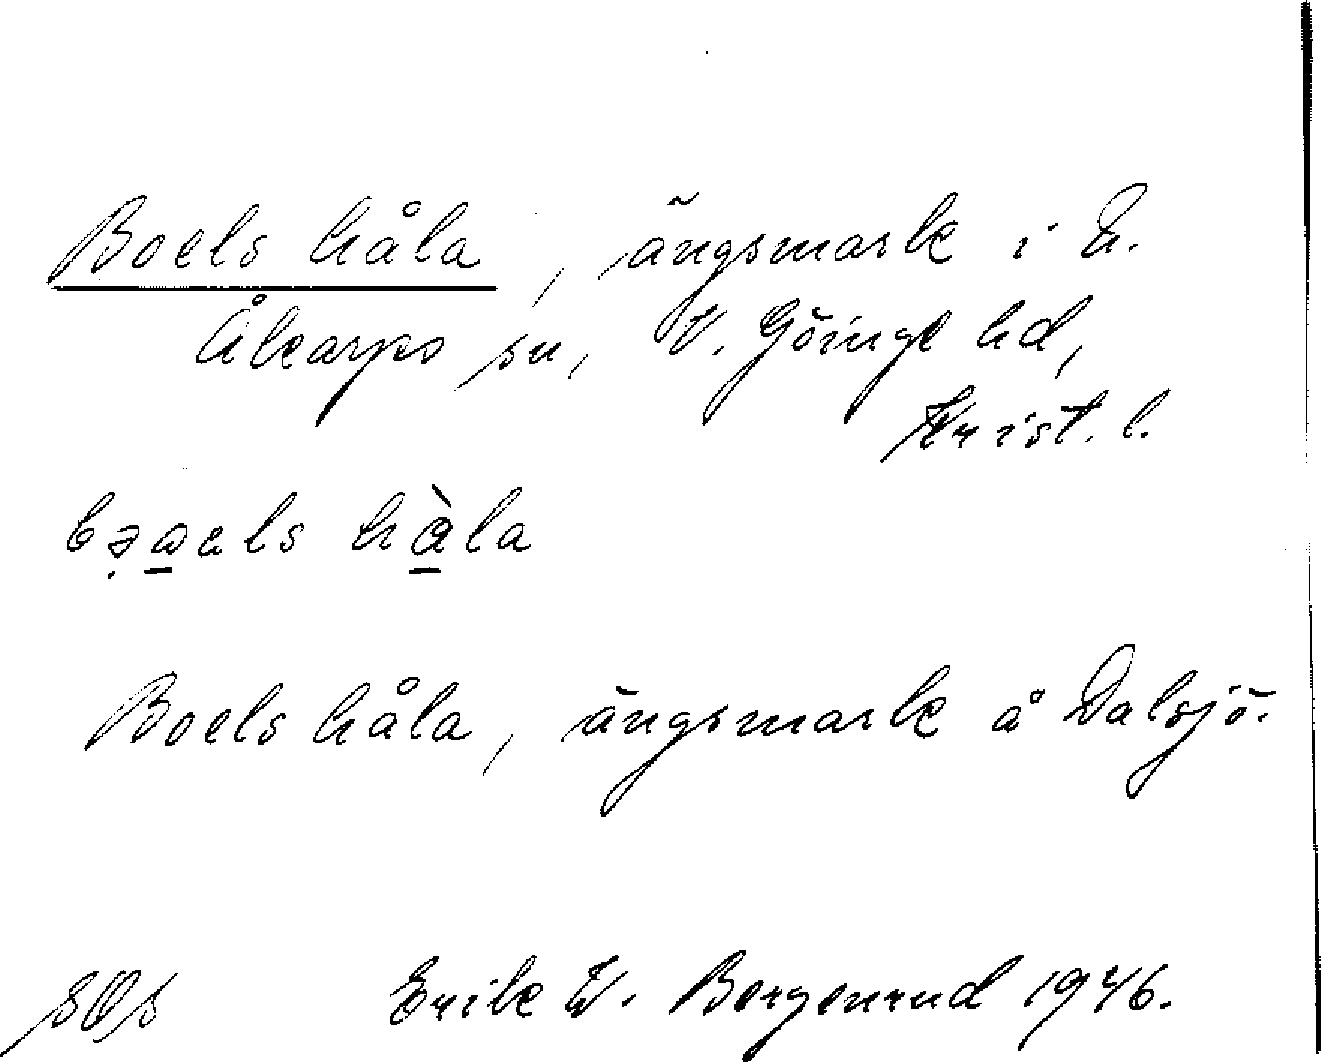 Boels håla, ängsmark i N.
Åkarps sn, V. Göinge hd,
Krist. l.
håla
Boels håla, ängsmark å Dalsjö.
Erik W. Bergenrud 1946.